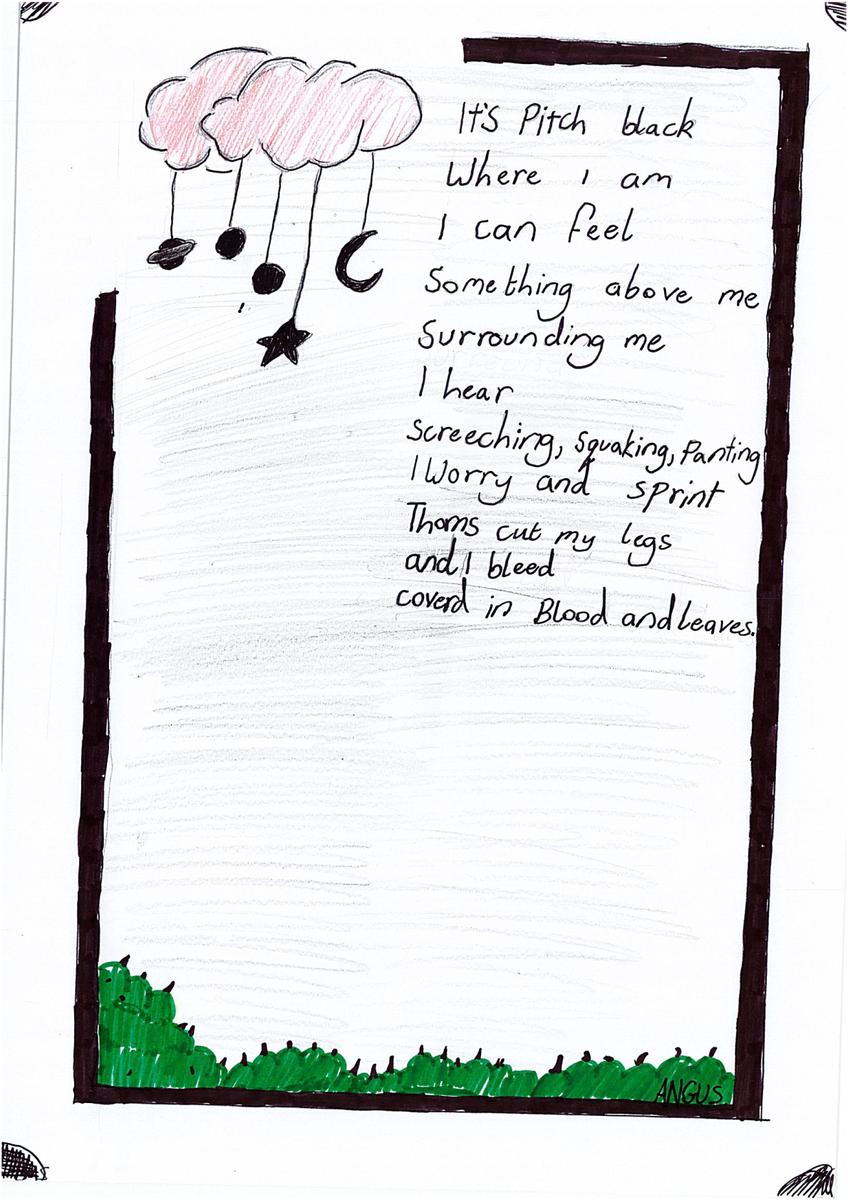 It's Pitch black
Where i am
I can feel
Something above me
Surrounding me
I hear
Screeching, Squaking, Panting
I Worry and sprint
Thorns cut my legs
and I bleed
coverd in Blood and leaves.
ANGUS